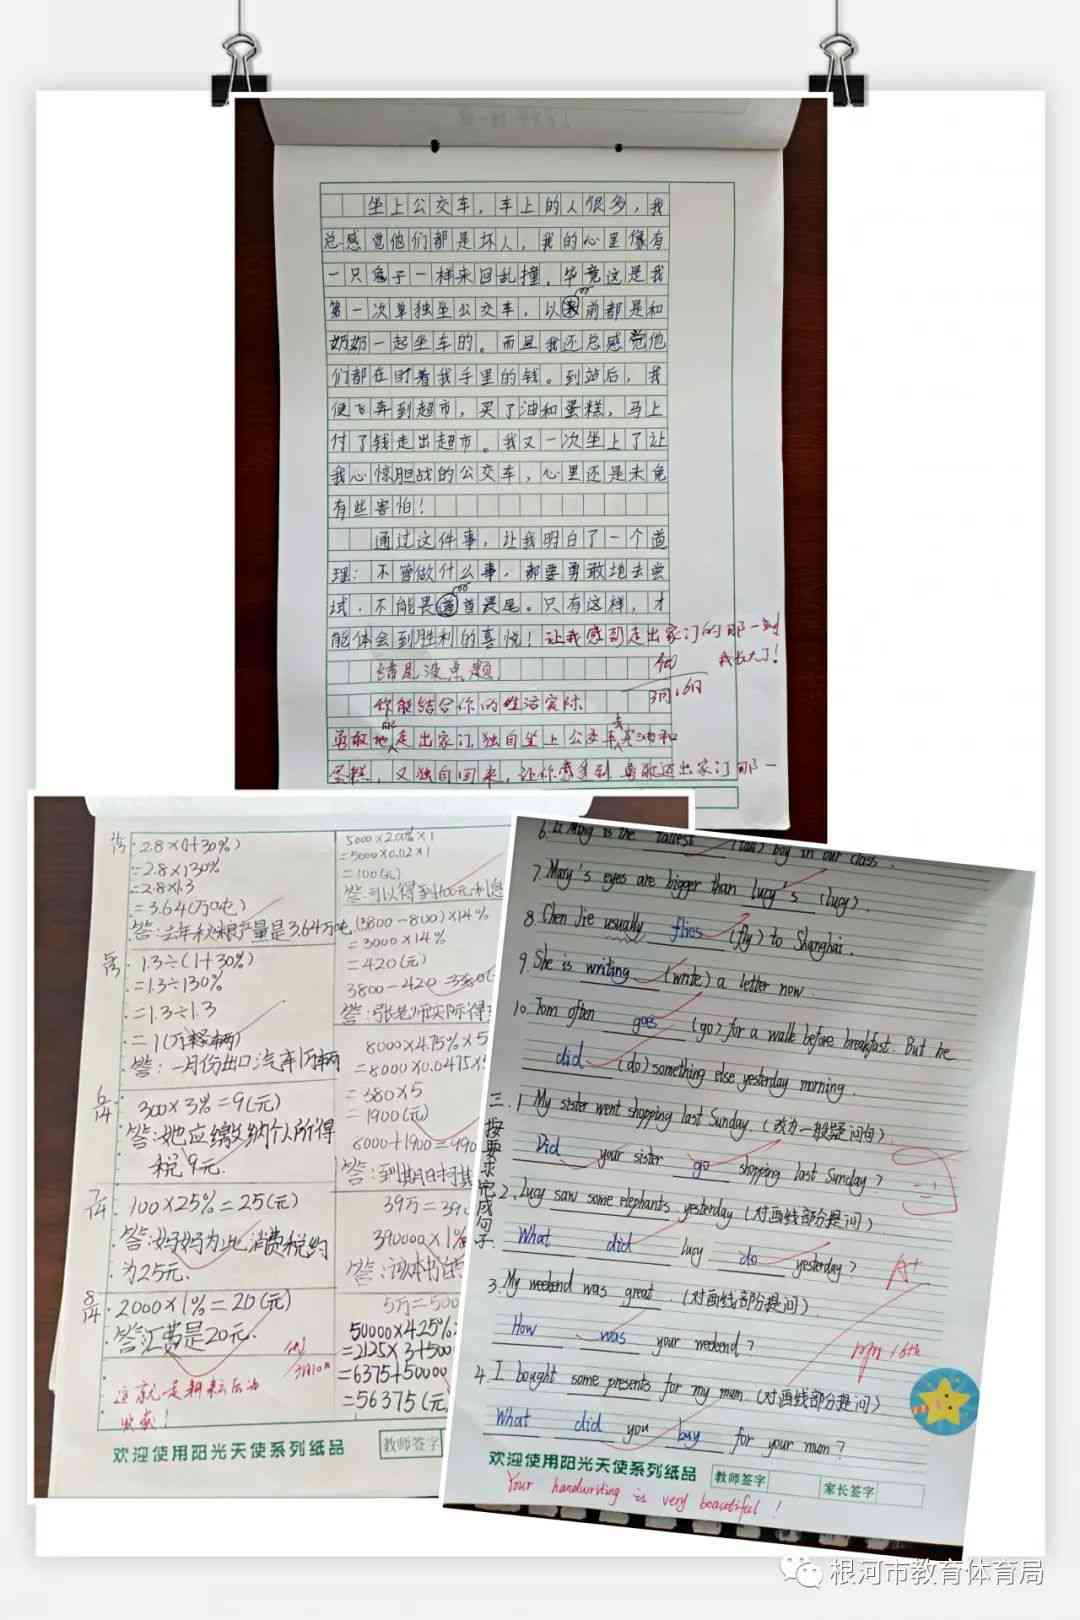 坐上公交车，车上的人很多，我
总感觉他们都是坏人，我的心里像有
一只兔子一样来回乱撞。毕竟这是我
第一次单独坐公交车，以前都是和
奶奶一起坐车的。而且我还总感觉他
们都在盯着我手里的钱。到站后，我
便飞奔到超市，买了油和蛋糕，马上
付了钱走出超市。我又一次坐上了让
我心惊胆战的公交车，心里还是未免
有些害怕！
通过这件事，让我明白了一个道
理：不管做什么事，都要勇敢地去尝
试，不能畏首畏尾。只有这样，才
能体会到胜利的喜悦！让我感到走出家门的那一刻
我长大了！
结尾没点题
你能结合你的生活实际
勇敢地走出家门，独自坐上公交车去买油和
蛋糕，又独自回来，让你感受到勇敢迈出家门那一
5/14 2.8×(1+30%)
=2.8×130%
=2.8×1.3
=3.64(万吨)
答：去年秋粮产量是3.64万吨
1.3÷(1+30%)
=1.3÷130%
=1.3÷1.3
=1(万辆)
答：一月份出口汽车1万辆
6/14 300×3%=9(元)
答：她应缴纳个人所得
税9元.
7/14 100×25%=25(元)
答：妈妈为此消费税约
为25元.
8/14 2000×1%=20(元)
答汇费是20元.
这就是耕耘后的
收获！
欢迎使用阳光天使系列纸品
教师签字
5000×2.00%×1
=5000×0.02×1
=100(元)
答：可以得到100元利息
(3800-800)×14%
=3000×14%
=420(元)
3800-420=3380(
答：张老师实际得
8000×4.75%×5
=8000×0.0475×5
=380×5
=1900(元)
8000+1900=990
答：到期时
39万=390
390000×1%
答：这本书
5万=500
50000×4.25%
=2125×3+500
=6375+50000
=56375(元)
6. Li Ming is the tallest (tall) boy in our class.
7. Mary's eyes are bigger than lucy's (lucy).
8. Chen Jie usually flies (fly) to Shanghai.
9. She is writing (write) a letter now.
10. Tom often goes (go) for a walk before breakfast. But he
did (do) something else yesterday morning.
三. 按要求完成句子.
1. My sister went shopping last Sunday. (改为一般疑问句)
Did your sister go shopping last Sunday?
2. Lucy saw some elephants yesterday (对画线部分提问)
What did lucy do yesterday?
A+
3. My weekend was great. (对画线部分提问)
How was your weekend?
4. I bought some presents for my mum. (对画线部分提问)
What did you buy for your mum?
欢迎使用阳光天使系列纸品
教师签字 家长签字
Your handwriting is very beautiful!
根河市教育体育局